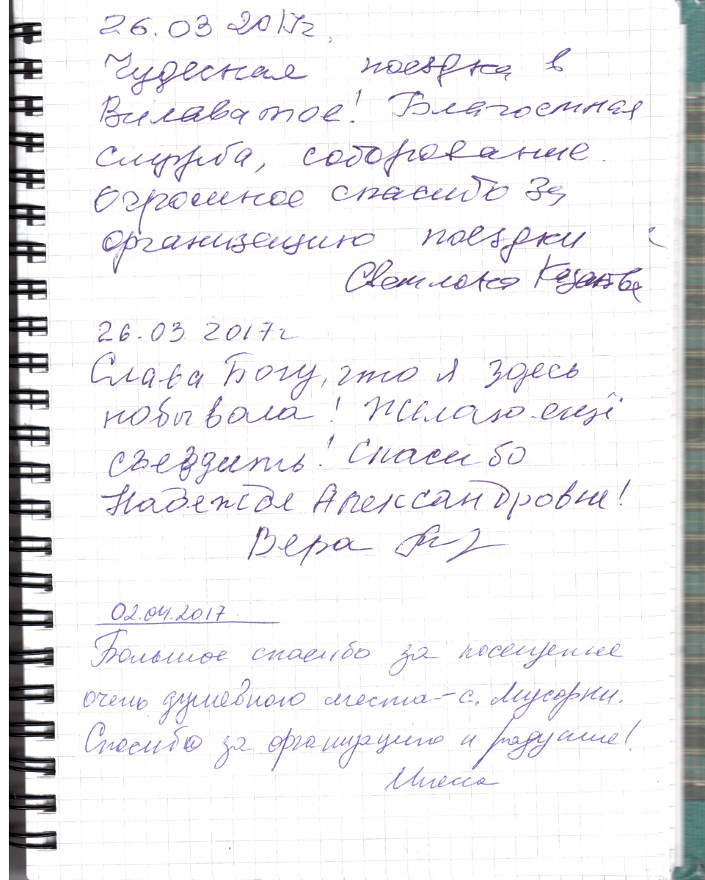 26.03 2017г.
Чудесная поездка в
Вилаватое! Благостная
служба, соборование.
Огромное спасибо за
организацию поездки
Светлана
26.03 2017г
Слава Богу, что я здесь
побывала! Желаю ещё
съездить! Спасибо
Надежде Александровне!
Вера
02.04.2017
Большое спасибо за посещение
очень душевного места - с. Мусорки.
Спасибо за организацию и радушие!